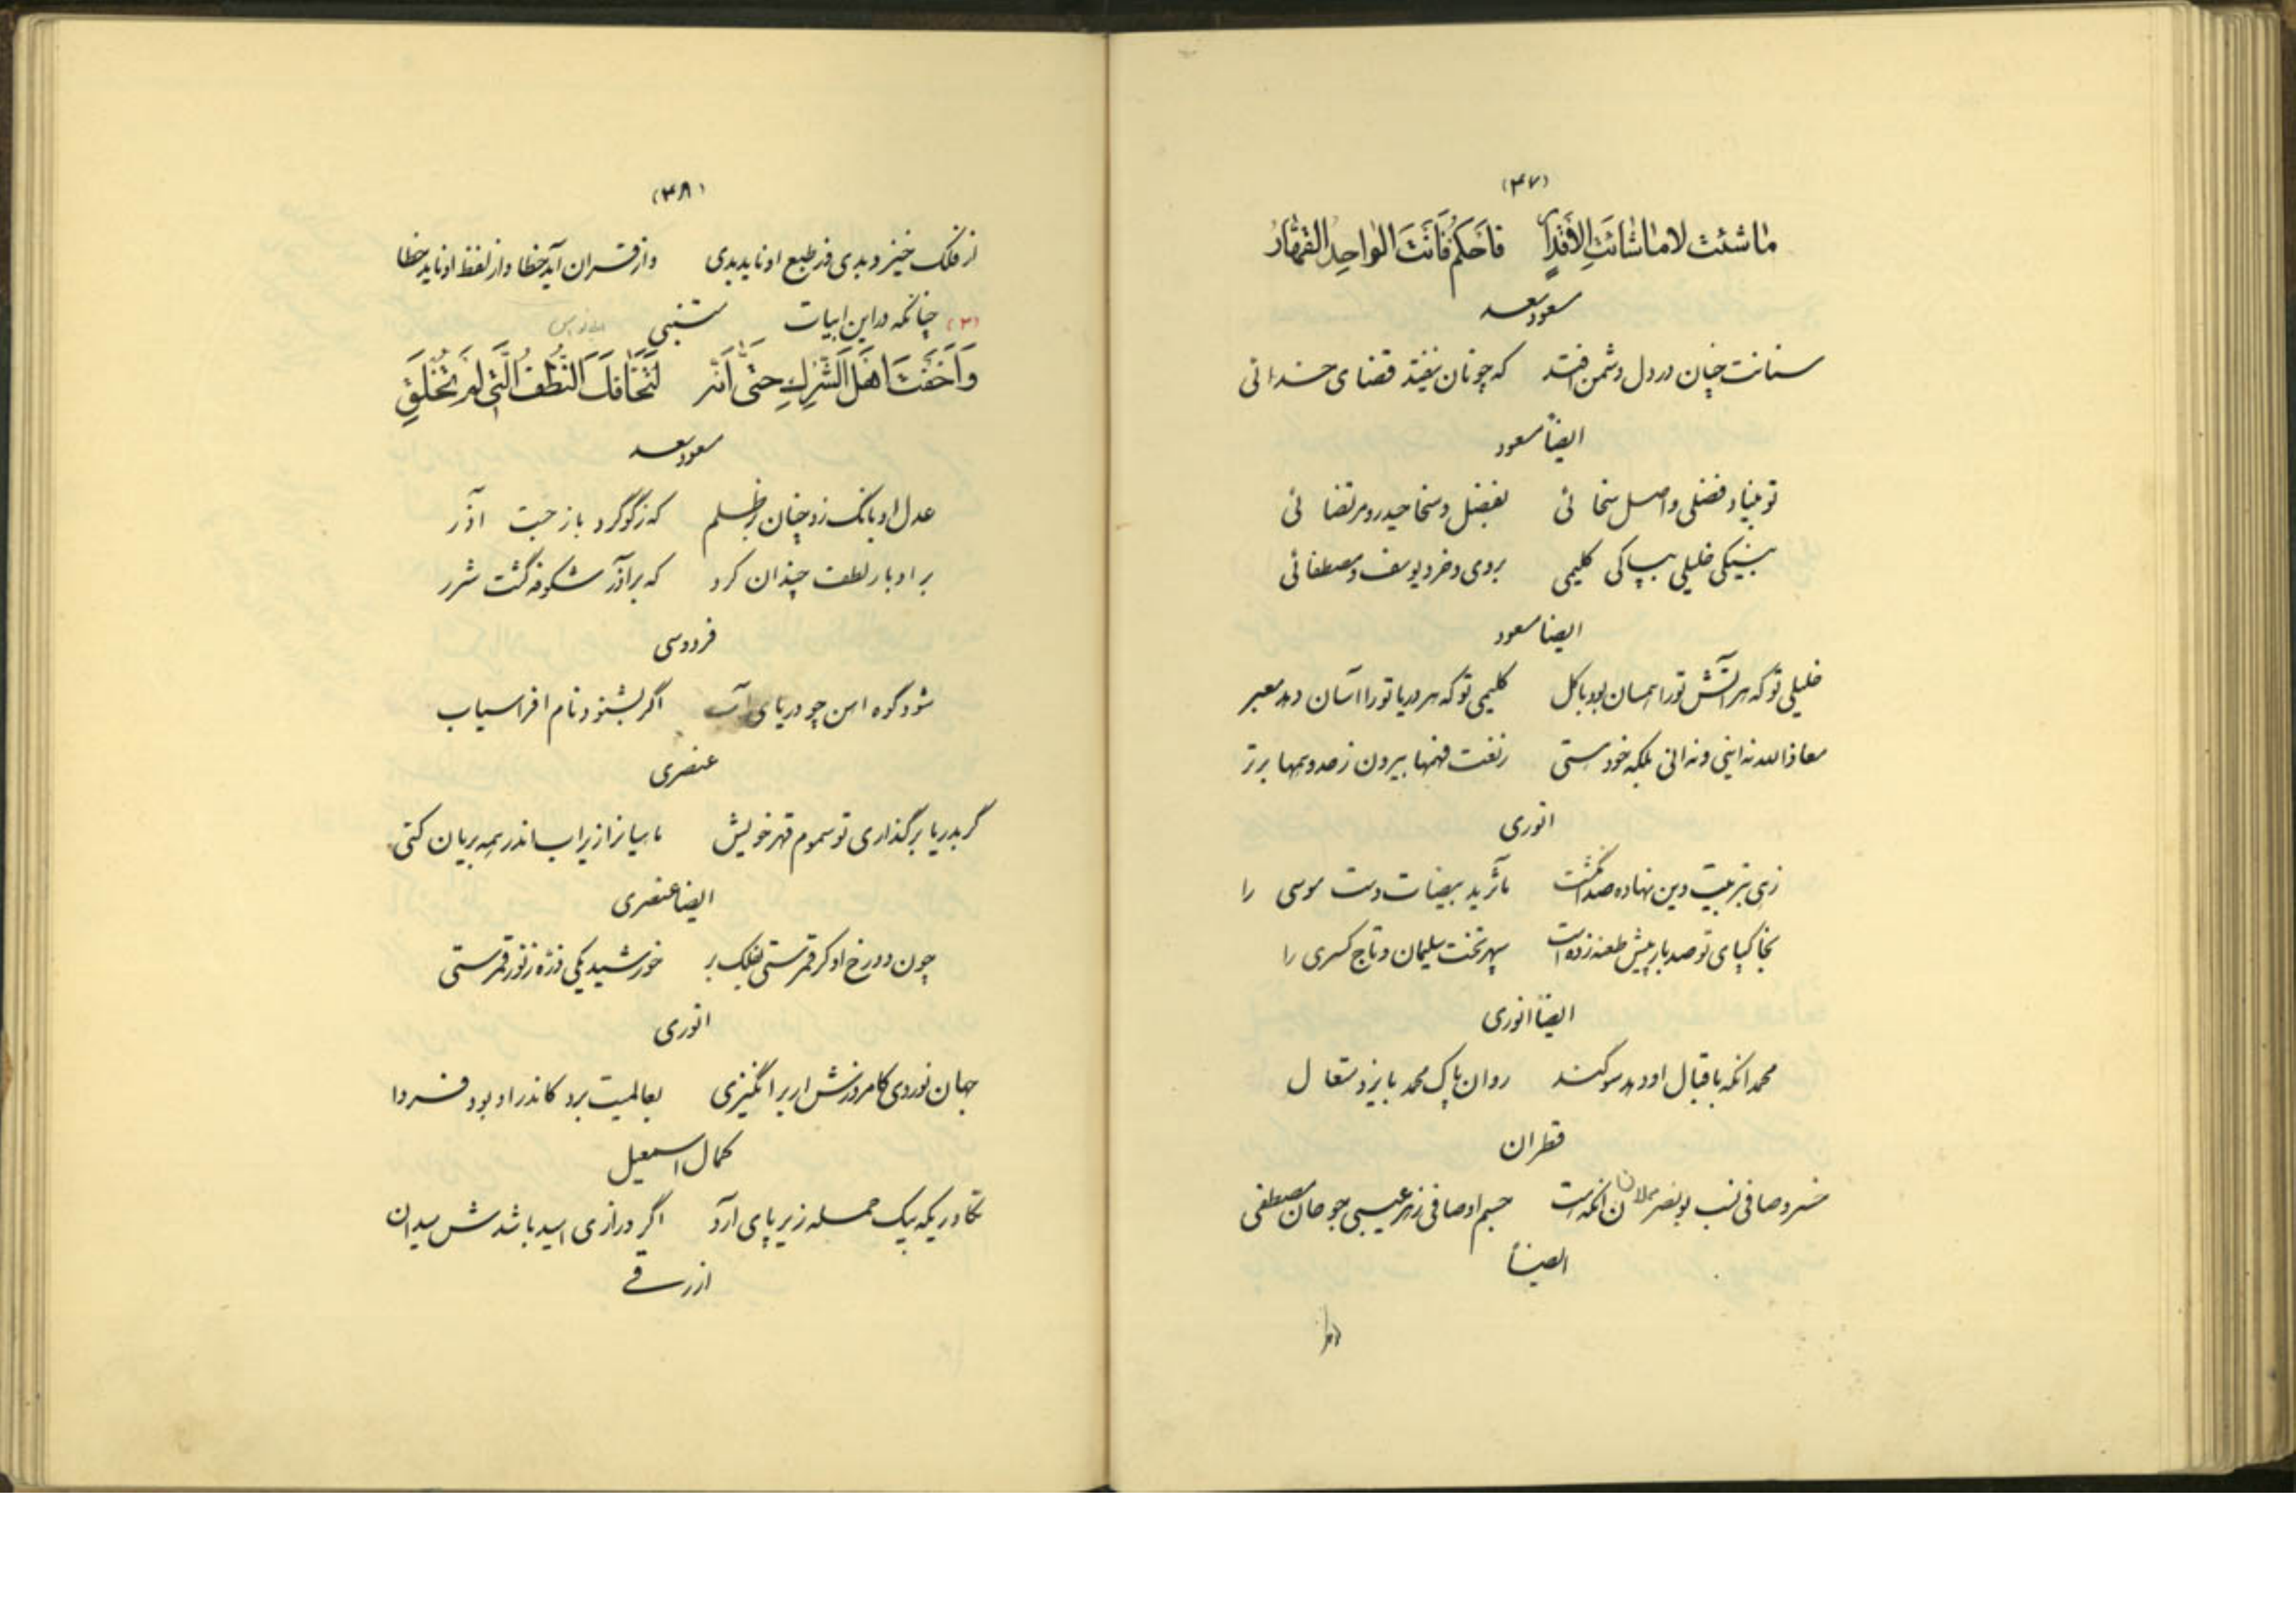 (۴۷)
ما شئت لا ما شائت الأقدار فاحكم فانت الواحد القهار
مسعود سعد
سنانت چنان در دل دشمن افتد که چونان نیفتد قضای خدائی
ایضاً مسعود
تو بنیاد فضلی و اصل سخا ئی بفضل و سخا حیدر و مرتضا ئی
بنیکی خلیلی بپاکی کلیمی بروی و خرد یوسف و مصطفائی
ایضا مسعود
خلیلی تو که هر آتش تو را یکسان بود با گل کلیمی تو که هر دریا تو را آسان دهد معبر
معاذالله نه اینی و نه آنی بلکه خود هستی ز نعت فهمها بیرون ز حد وهمها برتر
انوری
زهی بتربیت دین نهاده صد انگشت مآثر ید بیضات دست موسی را
بخاکپای تو صد بار بیش طعنه زده است سپهر تخت سلیمان و تاج کسری را
ایضاً انوری
محمد انکه باقبال او دهد سوگند روان پاک محمد بایزد متعا ل
قطران
خسرو صافی نسب بونصر مملان انکه هست جسم او صافی ز هر عیبی چو جان مصطفی
ایضاً
(۴۸)
از فلک خیزد بدی وز طبع او ناید بدی واز قران آید خطا واز لفظ او ناید خطا
(۳) چنانکه در این ابیات متنبی
وَاَخَفْتَ اَهْلَ الشِّرْكِ حَتّٰى اَنَّهُ لَتَخَافُكَ النُّطَفُ الَّتِي لَمْ تُخْلَقِ
مسعود سعد
عدل او بانک زد چنان بر ظلم که ز گوگرد باز جست آذر
بر او بار لطف چندان کرد که بر آذر شکوفه گشت شرر
فردوسی
شود کوه اهن چو دریای آب اگر بشنود نام افراسیاب
عنصری
گر بدریا برگذاری تو سموم قهر خویش ماهیانرا زیر اب اندر همه بریان کنی
ایضا عنصری
چون دو رخ او گر قمرستی بفلک بر خورشید یکی ذره ز نور قمرستی
انوری
جهان نوردی کامروزش ار برانگیزی بعالمیت برد کاندر او بود فردا
کمال اسمعیل
تکاوریکه بیک حمله زیر پای آرد اگر درازی امید باشدش میدان
ازرقی